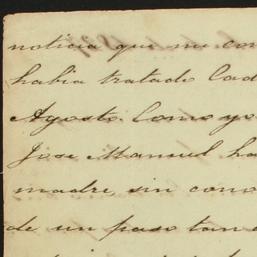 noticia que me con
habia tratado Cad
Agosto. Como yo
Jose Manuel ha
madre, sin cono
de un paso tan